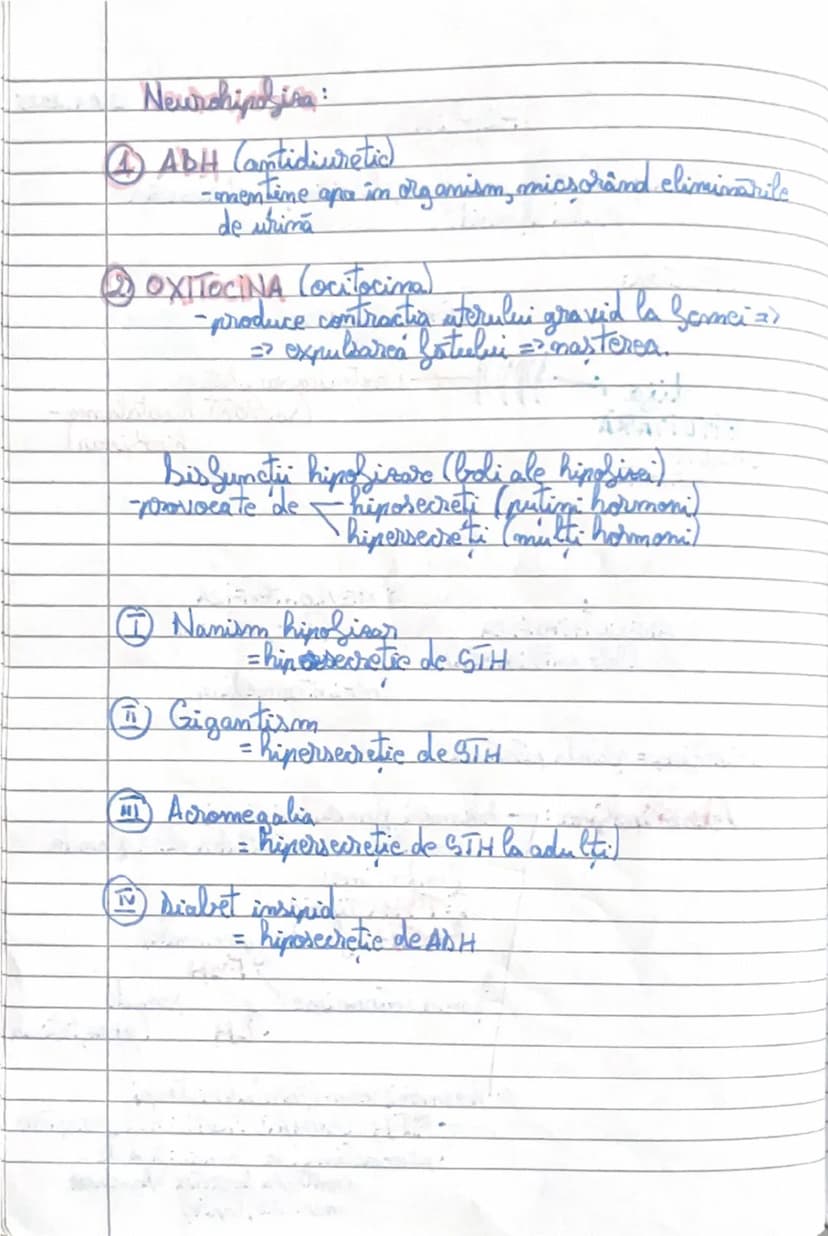 Neurohipofiza:
① ADH (antidiuretic)
-menține apa în organism, micșorând eliminările
de urină
② OXITOCINA (ocitocina)
-produce contracția uterului gravid la femei =>
=> expulsarea fătului => nașterea.
Disfuncții hipofizare (boli ale hipofizei)
-provocate de hiposecreți (puțini hormoni)
hipersecreți (mulți hormoni)
Ⅰ Nanism hipofizar
=hiposecreție de STH
Ⅱ Gigantism
= hipersecreție de STH
Ⅲ Acromegalia
= hipersecreție de STH la adulți)
Ⅳ Diabet insipid
= hiposecreție de ADH